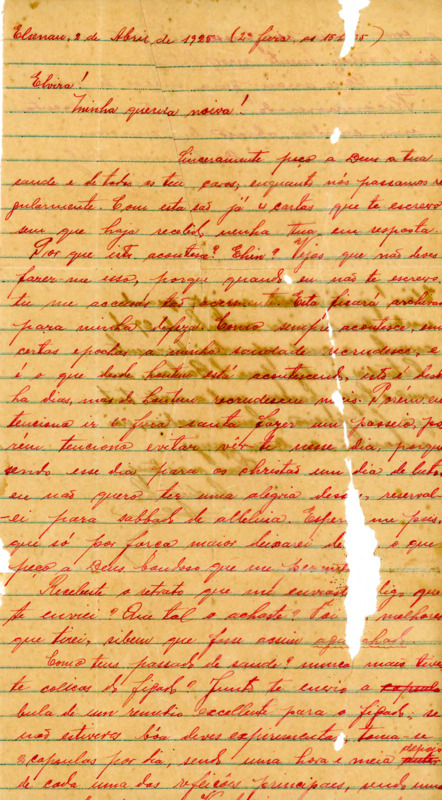 Elsenau, 2 de Abril de 1925 (2ª feira, as 15
Elvira!
Minha querida noiva!
Sinceramente peço a Deus a tua
saude e de todos os teus caros, enquanto nós passamos re
gularmente. Com esta são já 4 cartas que te escrevo
sem que haja recebido nenhuma tua em resposta.
Por que isto acontece? Ehin? Vejas que não deves
fazer me isso, porque quando eu não te escrevo,
tu me accusas tão
para minha defeza. Como sempre acontece, em
certas epochas, a minha saudade recrudesce, e
é o que desde hontem está acontecendo, isto é desde
ha dias, mas de hontem recrudesceu mais. Porém eu
tenciono ir 6ª feira santa fazer um passeio, po
rém tenciono evitar vêr-te nesse dia, porque
sendo esse dia para os christãos um dia de luto,
eu não quero ter uma alegria dessas, reserval-
-ei para sabbado de alleluia. Espera me pois
que só por força maior deixarei de o que
peço a Deus bondoso que me
Recebeste o retrato que mi digo que
te enviei? Que tal o achaste? Foi melhores
que tirei, sibem que fosse assim agachado.
Como tens passado de saude? nunca mais tives-
te colicas do figado? Junto te envio a capsula
bula de um remedio excellente para o figado; se
não estiveres bôa deves experimental-o, toma-se
2 capsulas por dia, sendo uma hora e meia depois
de cada uma das refeições principaes, sendo uma